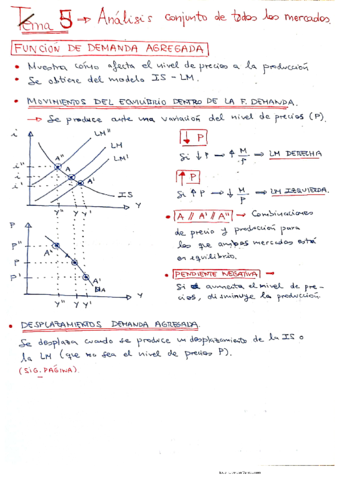 Tema 5 → Análisis conjunto de todos los mercados
FUNCIÓN DE DEMANDA AGREGADA
• Muestra cómo afecta el nivel de precios a la producción
• Se obtiene del modelo IS - LM.
• MOVIMIENTOS DEL EQUILIBRIO DENTRO DE LA F. DEMANDA.
→ Se produce ante una variación del nivel de precios (P).
i
LM''
LM
LM'
A''
A
A'
i''
i
i'
IS
y'' y y'
Y
↓ P
Si ↓ P → ↑ M/P → LM DERECHA
↑ P
Si ↑ P → ↓ M/P → LM IZQUIERDA.
P
P''
P
P'
A''
A
A'
DA
y'' y y'
Y
• A // A' // A'' → Combinaciones
de precio y producción para
los que ambos mercados está
en equilibrio.
• PENDIENTE NEGATIVA →
Si aumenta el nivel de pre-
cios, disminuye la producción
• DESPLAZAMIENTOS DEMANDA AGREGADA.
Se desplaza cuando se produce un desplazamiento de la IS o
la LM (que no sea el nivel de precios P).
(SIG. PÁGINA).